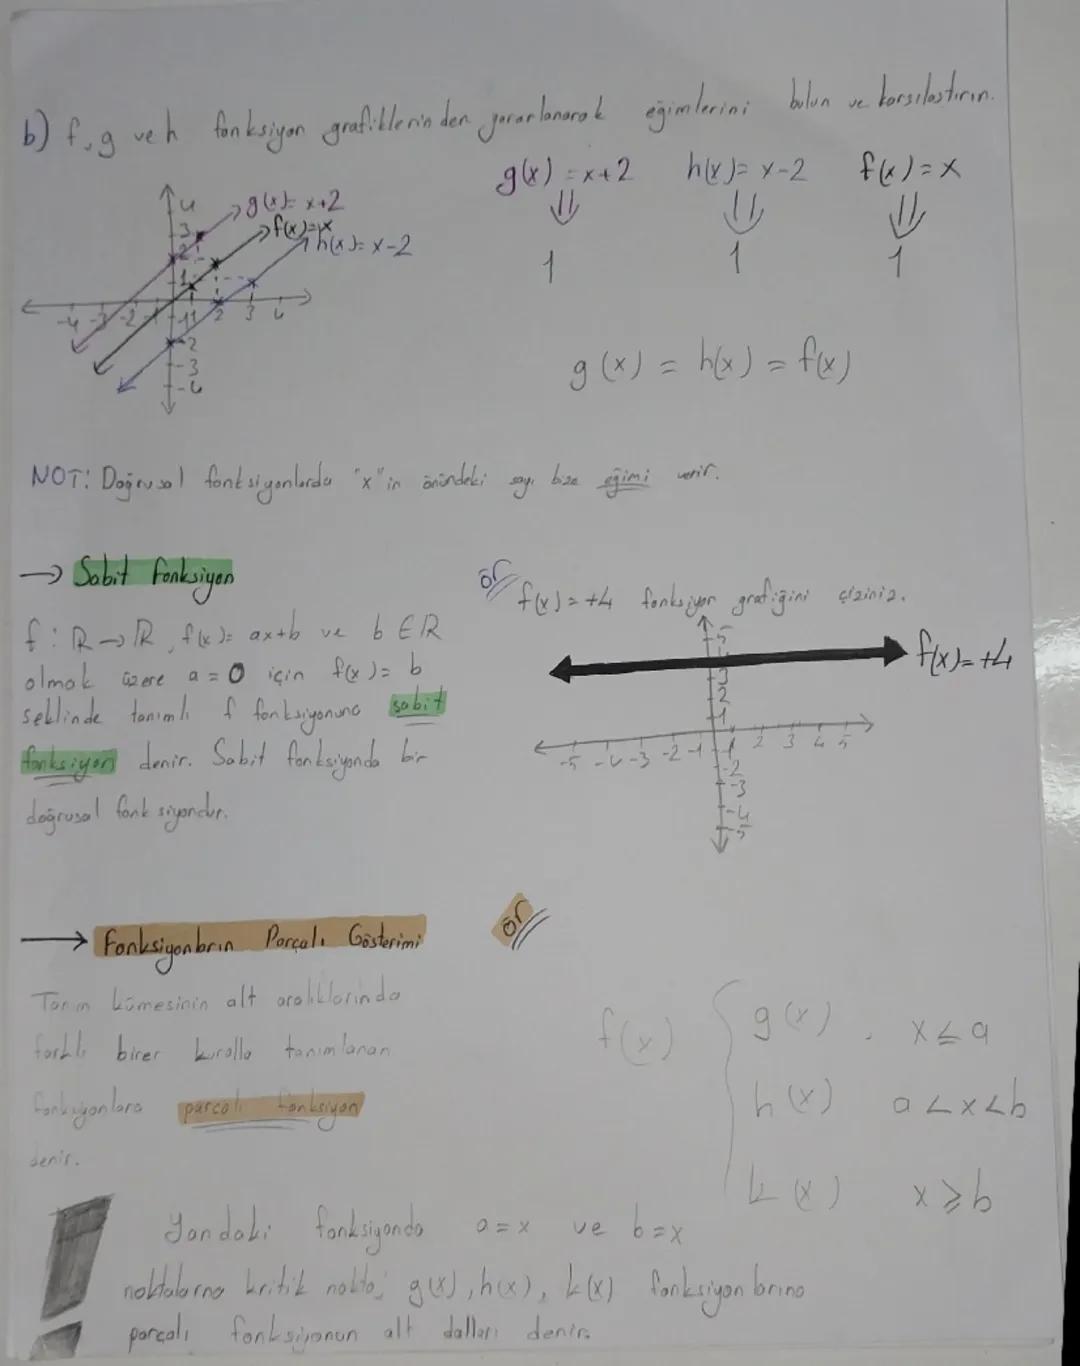 b) f, g ve h fonksiyon grafiklerinden yararlanarak eğimlerini bulun ve karşılaştırın.
g(x) = x+2 h(x) = x-2 f(x) = x
⇓ ⇓ ⇓
1 1 1
g(x) = x+2
f(x)=x
h(x) = x-2
4
3
2
1
-4 -3 -2 -1 1 2 3 4
-1
-2
-3
-4
g(x) = h(x) = f(x)
NOT: Doğrusal fonksiyonlarda "x"in önündeki sayı bize eğimi verir.
→ Sabit Fonksiyon
f : ℝ → ℝ, f(x) = ax+b ve b ∈ ℝ
olmak üzere a = 0 için f(x) = b
şeklinde tanımlı f fonksiyonuna sabit
fonksiyon denir. Sabit fonksiyonda bir
doğrusal fonksiyondur.
ör f(x) = +4 fonksiyon grafiğini çiziniz.
f(x) = +4
5
4
3
2
1
-5 -4 -3 -2 -1 1 2 3 4 5
-1
-2
-3
-4
-5
→ Fonksiyonların Parçalı Gösterimi
Tanım kümesinin alt aralıklarında
farklı birer kuralla tanımlanan
fonksiyonlara parçalı fonksiyon
denir.
ör
f(x) { g(x) , x ≤ a
h(x) a < x < b
k(x) x ≥ b
! Yandaki fonksiyonda a = x ve b = x
noktalarına kritik nokta, g(x), h(x), k(x) fonksiyonlarına
parçalı fonksiyonun alt dalları denir.